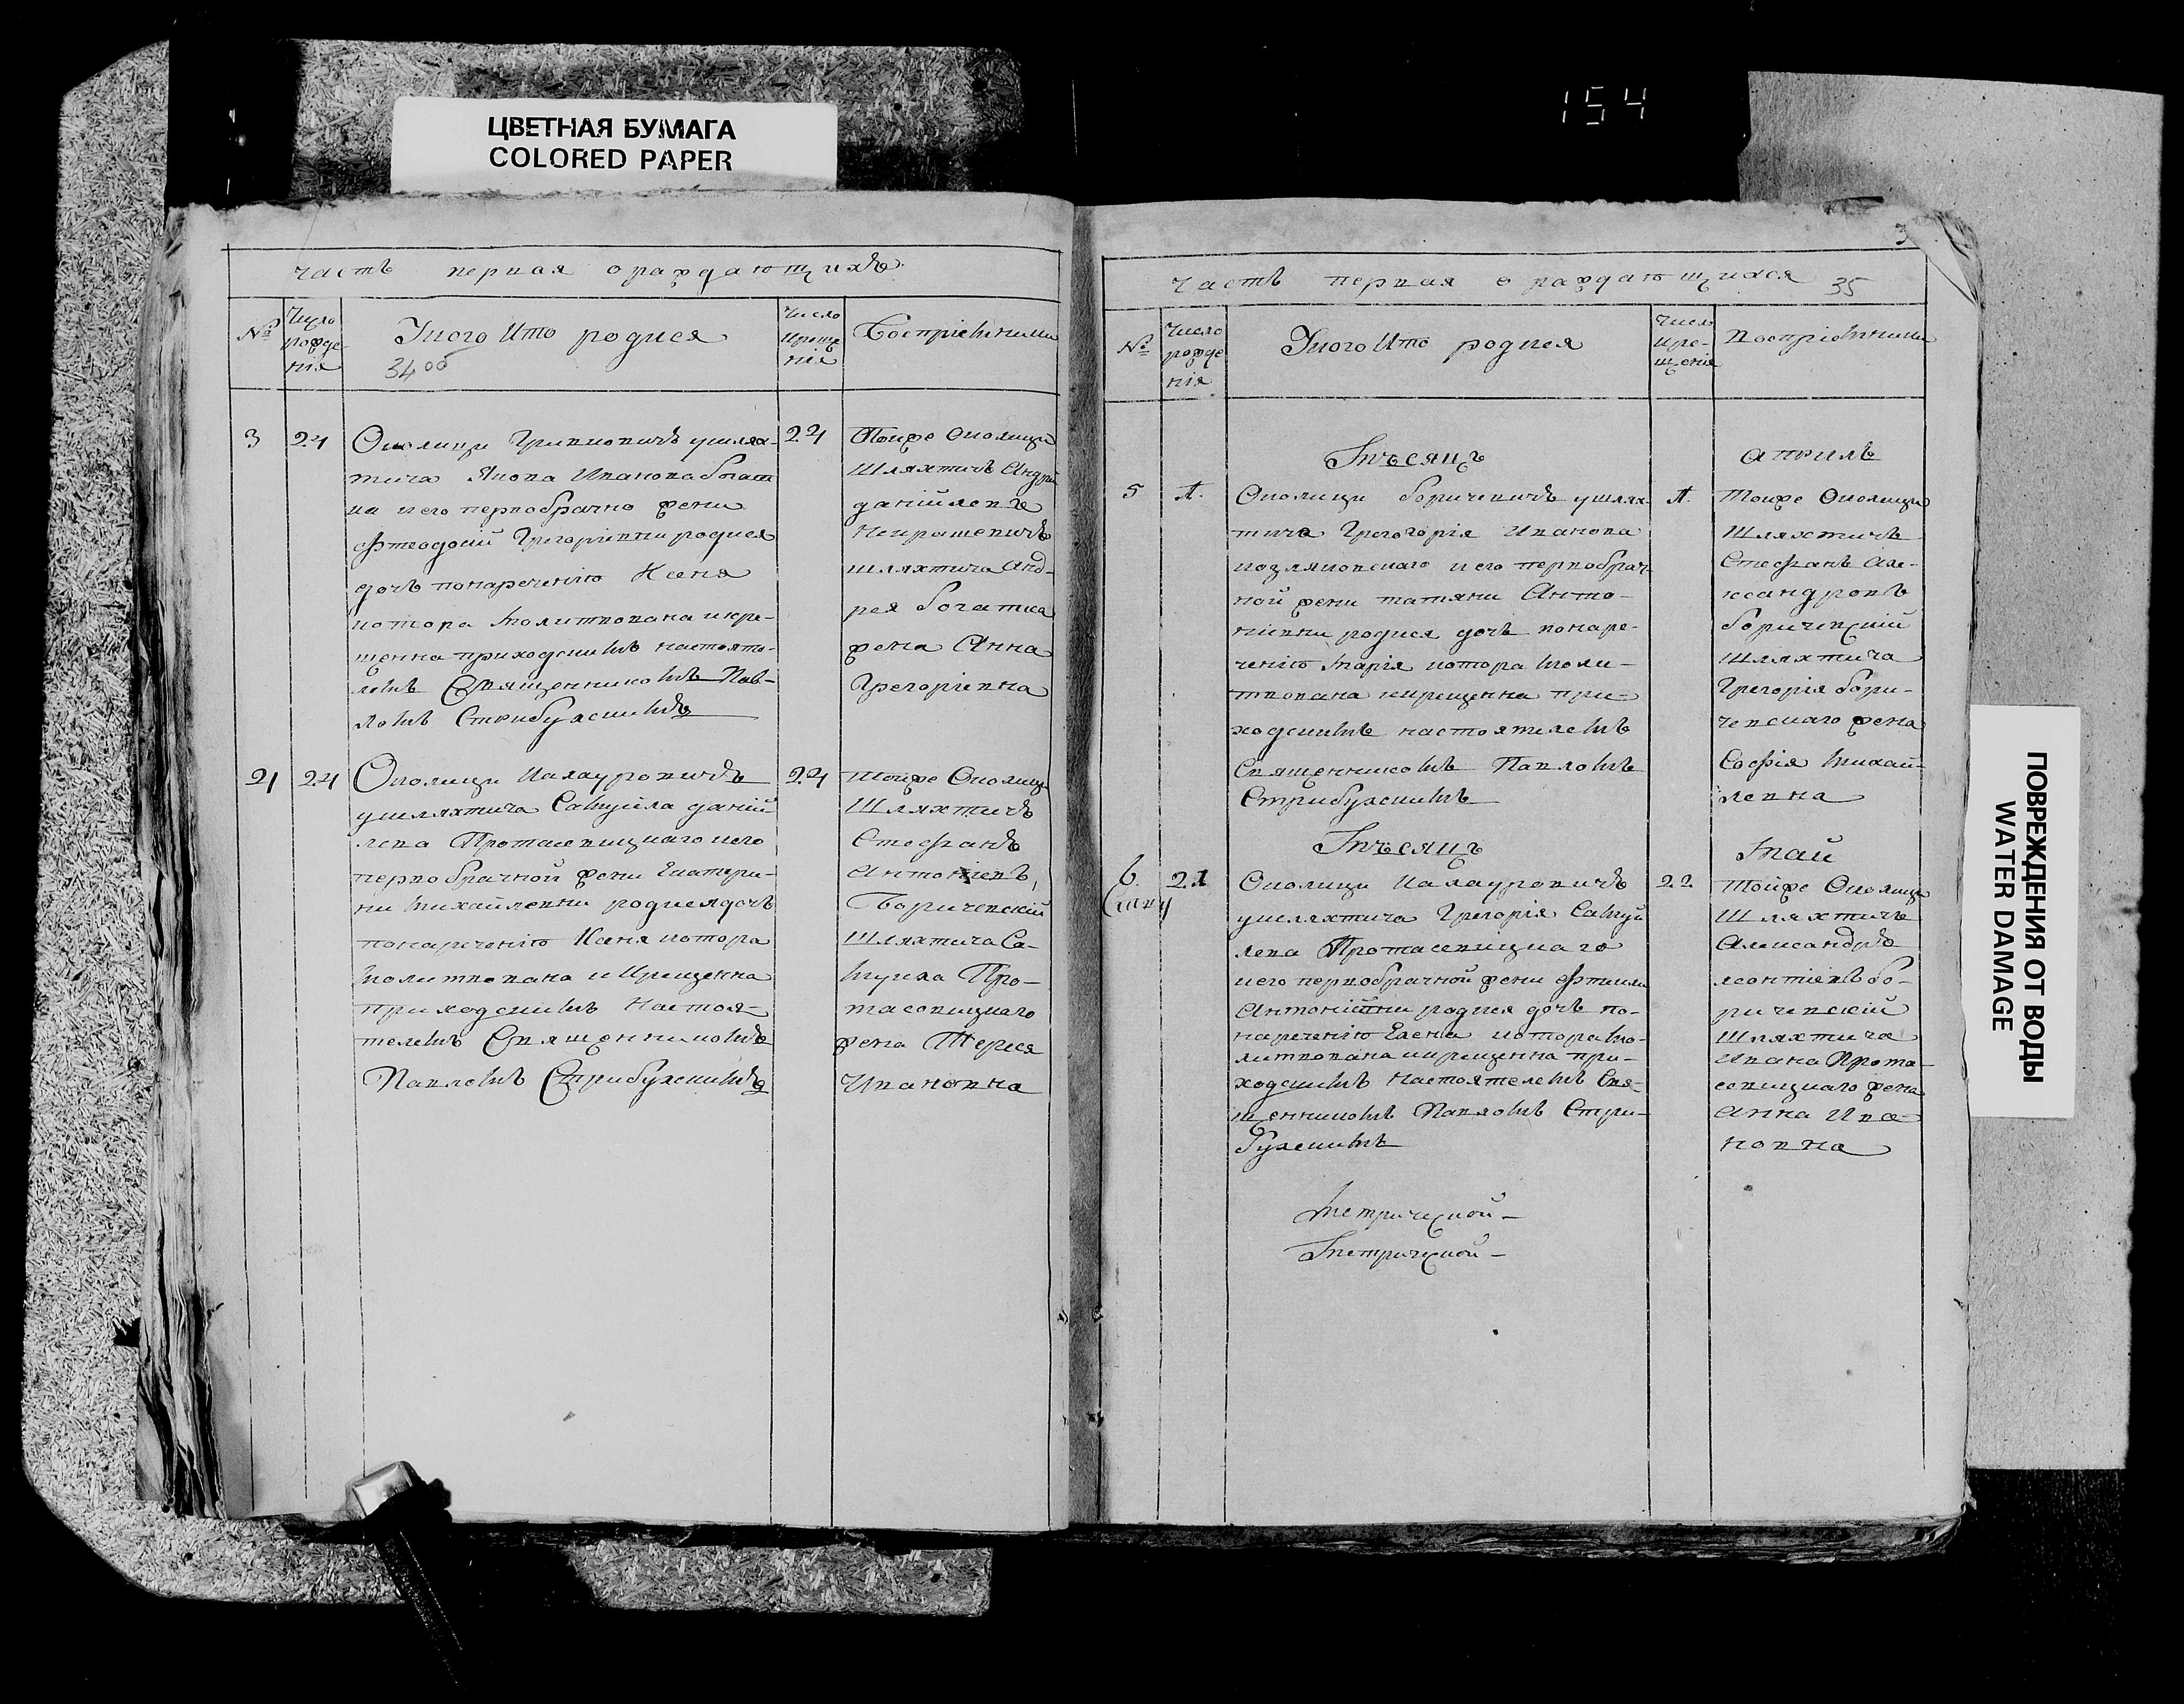 ЦВЕТНАЯ БУМАГА
COLORED PAPER
154
часть первая о раждающихъ
№
Число рожде-нія
У кого кто родися
34об
Число креще нія
Воспріемники
3
24
Околици Гривковичъ у шлях-
тича Якова Иванова Богат
ка и его первобрачно жени
Фтеодосій Григоріевни родися
дочъ понареченію Ксеня
котора молитвована и кре-
щенна приходскимъ настояте-
лемъ Священникомъ Пав-
ломъ Стрибульскимъ
24
Тойже Околици
Шляхтичъ Андрей
данійлевъ
Некрашевичъ
шляхтича Анд-
рея Богатка
жена Анна
Григоріевна
4
24
Околици Калауровичъ
у шляхтича Самуйла даній
лева Протасевицкаго и его
первобрачной жени Екатери-
ни Михайлевни родися дочъ
понареченію Ксеня котора
молитвована и Крещенна
приходскимъ Настоя-
телемъ Священникомъ
Павлемъ Стрибульскимъ
24
Тойже Околици
Шляхтичъ
Стефанъ
Антоніевъ,
Боричевскій
Шляхтича Са-
муила Про-
тасовицкаго
жена Тереся
Ивановна
3
часть первая о раждающихся
35
№
Число рожде нія
У кого кто родися
Число кре-щенія
Воспріемники
Мѣсяцъ
Априль
5
Околици Боричевичъ у шлях-
тича Григорія Иванова
козляковскаго и его первобрач-
ной жени татяни Анто-
ніевни родися дочъ понаре-
ченію Марія котора моли-
твована и крещенна при-
ходскимъ настоятелемъ
Священникомъ Павломъ
Стрибульскимъ
Тойже Околици
Шляхтичъ
Стефанъ Але-
ксандровъ
Боричевскій
Шляхтича
Григорія Бори-
чевскаго жена
Софія Михай-
левна
Мѣсяцъ
Май
6.
21
Околици Калауровичъ
у шляхтича Григорія Самуй
лева Протасевицкаго
и его первобрачной жени
Антонійвни родися дочъ по-
нареченію Елена котора мо-
литвована и крещенна при-
ходскимъ Настоятелемъ Свя-
щенникомъ Павломъ Стри-
бульскимъ
22.
Тойже Околици
Шляхтичъ
Александръ
леонтіевъ Бо-
ричевскій
Шляхтича
Ивана Прота-
совицкаго жена
Анна Ива-
новна
Метрической-
Метрической-
ПОВРЕЖДЕНИЯ ОТ ВОДЫ
WATER DAMAGE